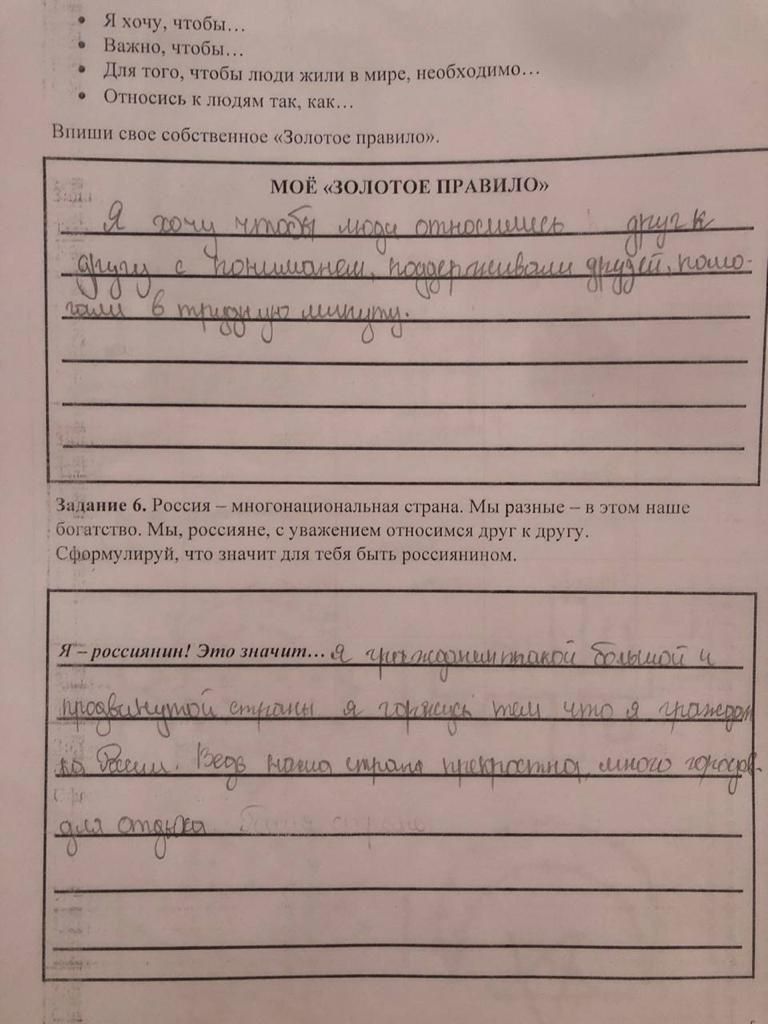 • Я хочу, чтобы…
• Важно, чтобы…
• Для того, чтобы люди жили в мире, необходимо…
• Относись к людям так, как…
Впиши свое собственное «Золотое правило».
МОЁ «ЗОЛОТОЕ ПРАВИЛО»
Я хочу чтобы люди относились друг к
другу с пониманем, поддерживали друзей, помо-
гали в трудную минуту.
Задание 6. Россия – многонациональная страна. Мы разные – в этом наше
богатство. Мы, россияне, с уважением относимся друг к другу.
Сформулируй, что значит для тебя быть россиянином.
Я – россиянин! Это значит… я гражданин такой большой и
продвинутой страны я горжусь тем что я граждан
ка России. Ведь наша страна прекрастна, много городов
для отдыха